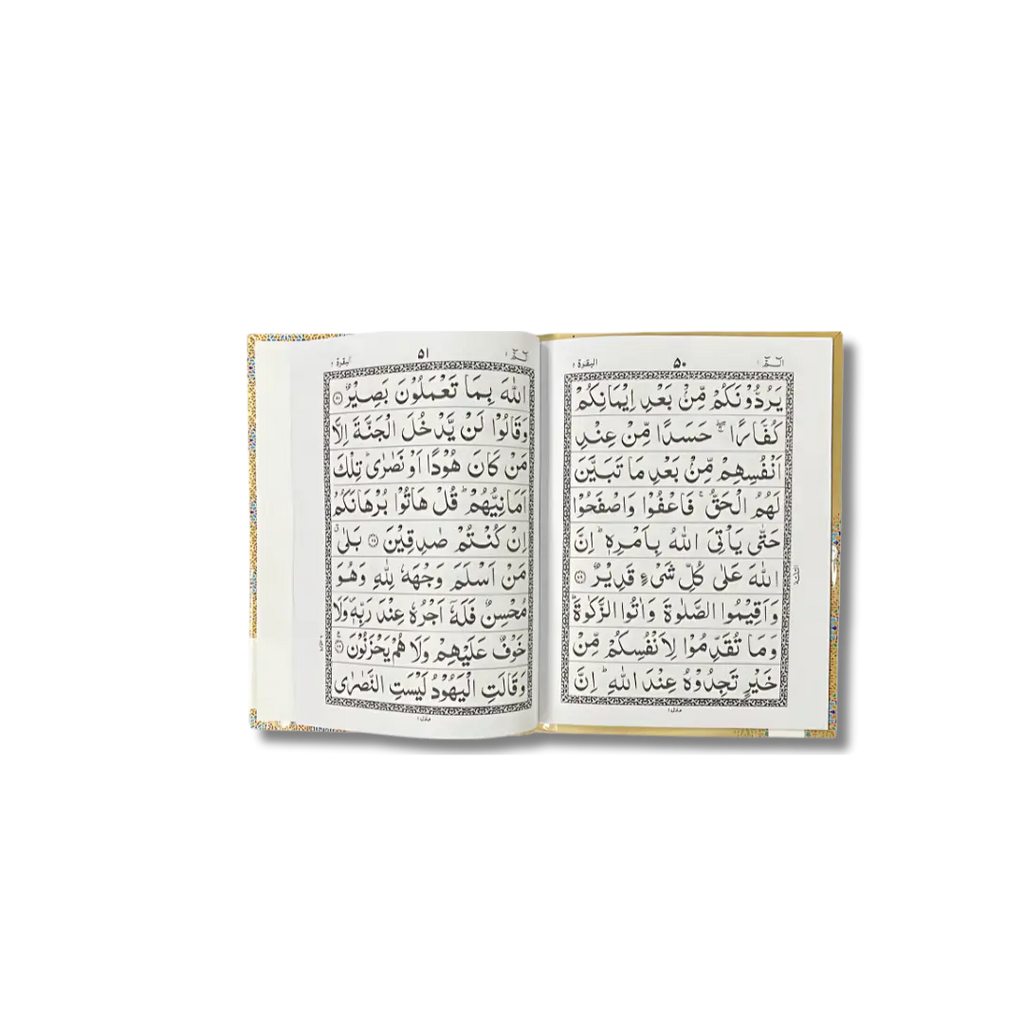 الٓمّٓ
۵۰
البقرة ٢
يَرُدُّوْنَكُمْ مِّنْۢ بَعْدِ اِيْمَانِكُمْ
كُفَّارًا ۚۖ حَسَدًا مِّنْ عِنْدِ
اَنْفُسِهِمْ مِّنْۢ بَعْدِ مَا تَبَيَّنَ
لَهُمُ الْحَقُّ ۚ فَاعْفُوْا وَاصْفَحُوْا
حَتّٰى يَاْتِىَ اللّٰهُ بِاَمْرِهٖ ؕ اِنَّ
اللّٰهَ عَلٰى كُلِّ شَىْءٍ قَدِيْرٌ ﴿۱۰۹﴾
وَاَقِيْمُوا الصَّلٰوةَ وَاٰتُوا الزَّكٰوةَ ؕ
وَمَا تُقَدِّمُوْا لِاَنْفُسِكُمْ مِّنْ
خَيْرٍ تَجِدُوْهُ عِنْدَ اللّٰهِ ؕ اِنَّ
منزل ١
الٓمّٓ
۵۱
البقرة ٢
اللّٰهَ بِمَا تَعْمَلُوْنَ بَصِيْرٌ ﴿۱۱۰﴾
وَقَالُوْا لَنْ يَّدْخُلَ الْجَنَّةَ اِلَّا
مَنْ كَانَ هُوْدًا اَوْ نَصٰرٰى ؕ تِلْكَ
اَمَانِيُّهُمْ ؕ قُلْ هَاتُوْا بُرْهَانَكُمْ
اِنْ كُنْتُمْ صٰدِقِيْنَ ﴿۱۱۱﴾ بَلٰى ۗ
مَنْ اَسْلَمَ وَجْهَهٗ لِلّٰهِ وَهُوَ
مُحْسِنٌ فَلَهٗۤ اَجْرُهٗ عِنْدَ رَبِّهٖ ۪ وَلَا
خَوْفٌ عَلَيْهِمْ وَلَا هُمْ يَحْزَنُوْنَ ﴿۱۱۲﴾
وَقَالَتِ الْيَهُوْدُ لَيْسَتِ النَّصٰرٰى
منزل ١